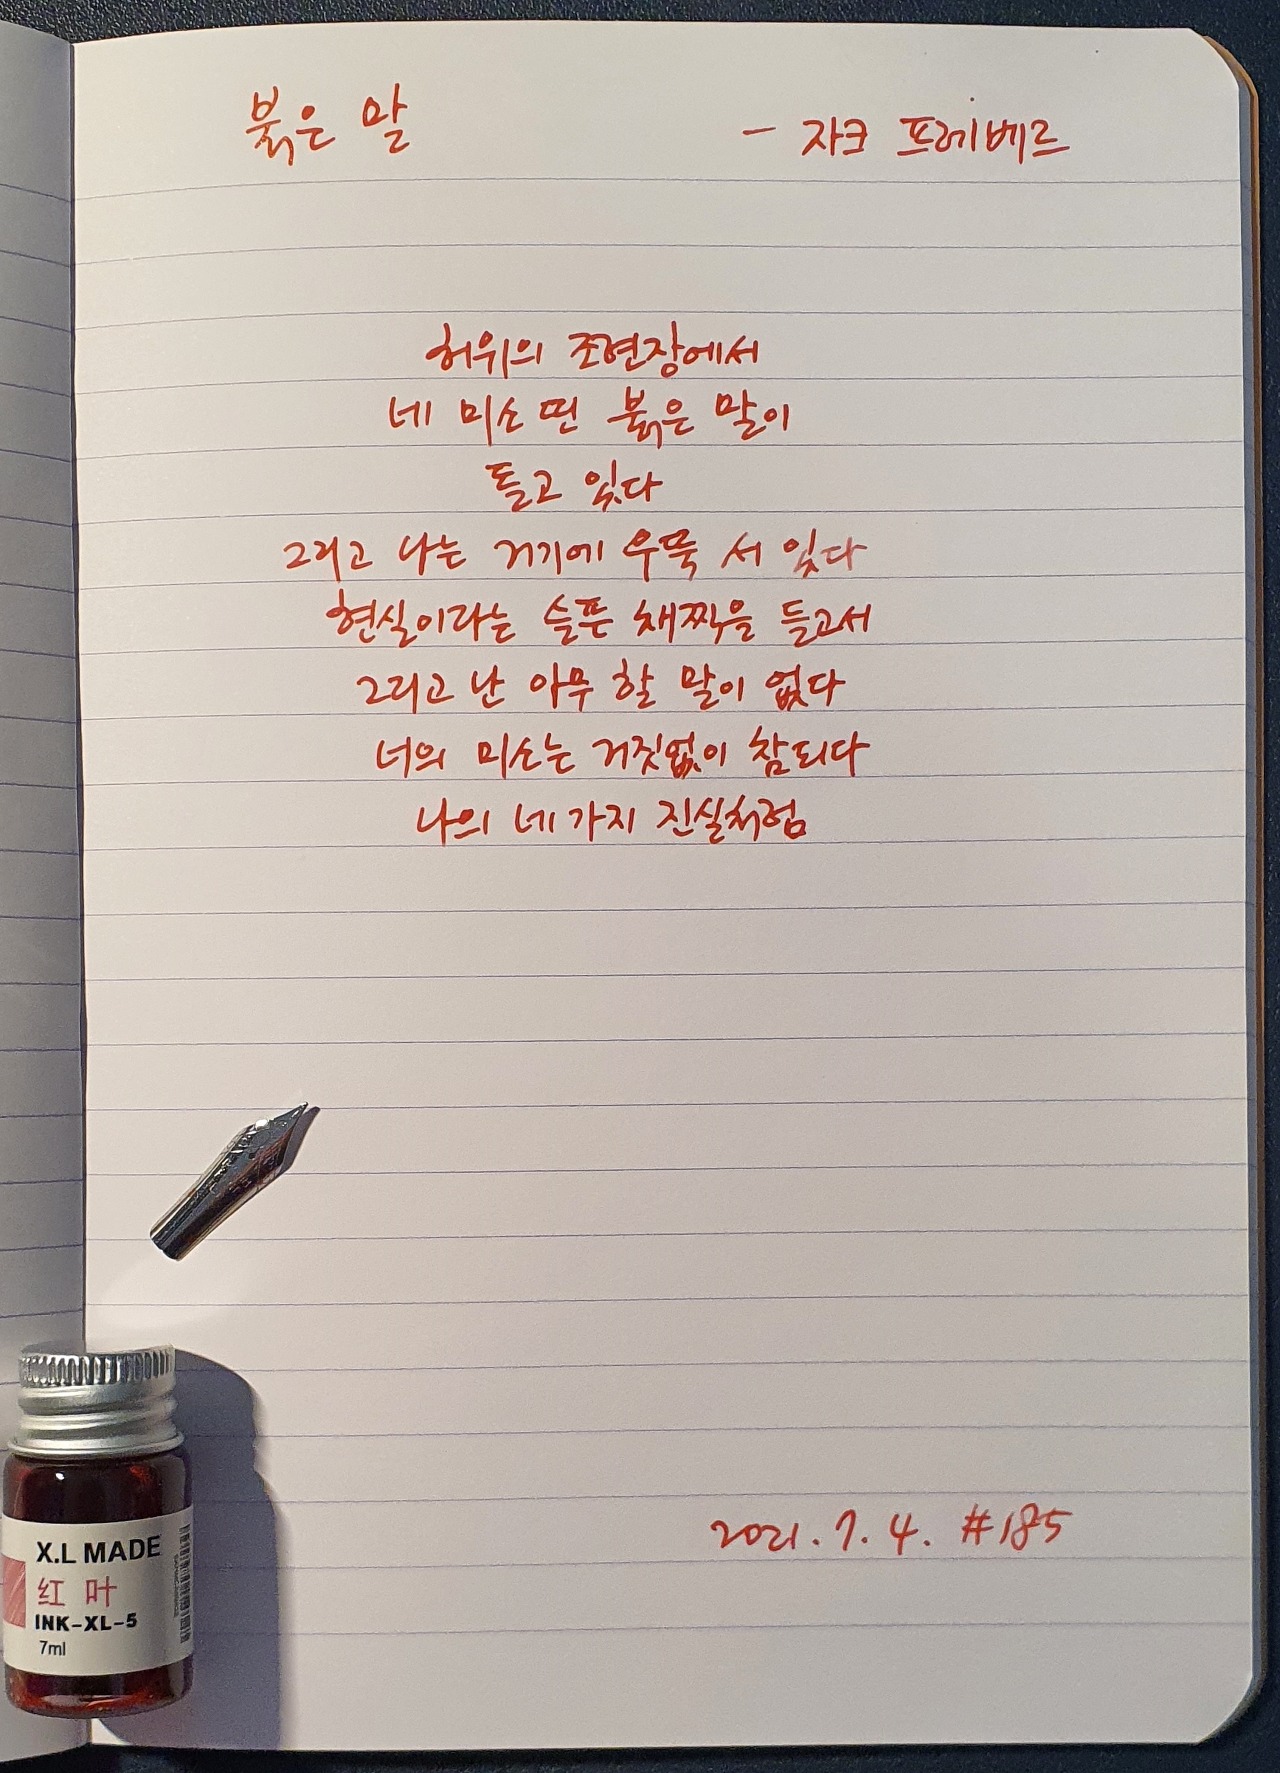 붉은 말
- 자크 프레베르
허위의 조현장에서
네 미소 띤 붉은 말이
돌고 있다
그리고 나는 거기에 우뚝 서 있다
현실이라는 슬픈 채찍을 들고서
그리고 난 아무 할 말이 없다
너의 미소는 거짓없이 참되다
나의 네 가지 진실처럼
2021.7.4. #185
X.L MADE
红叶
INK-XL-5
7ml